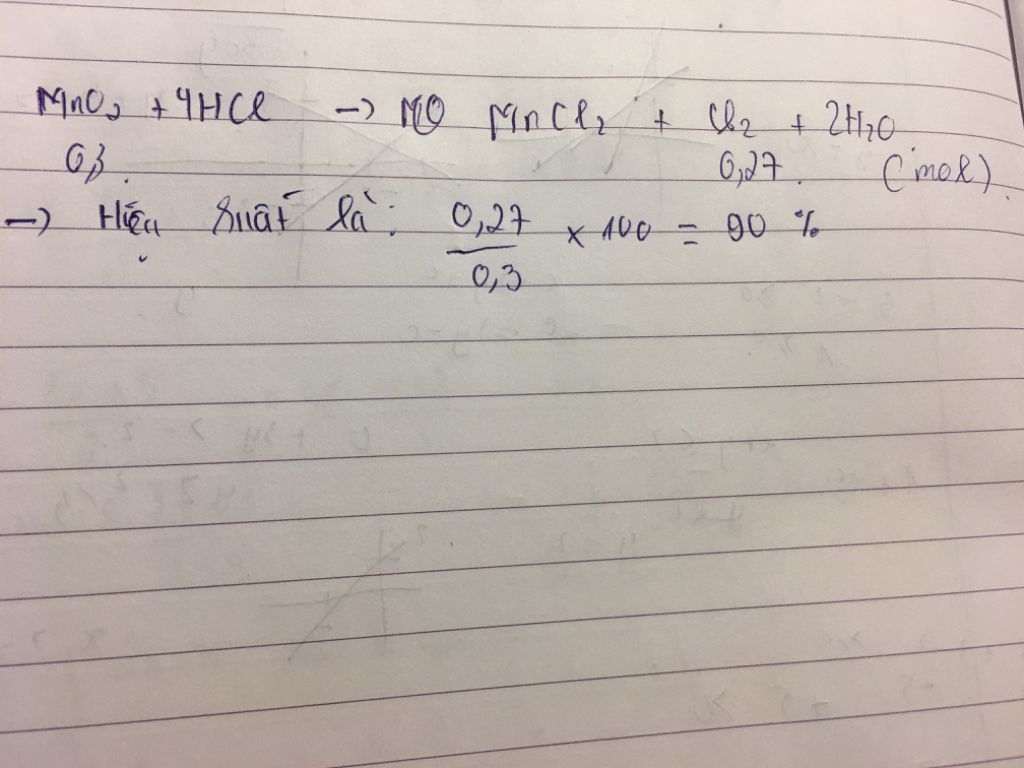 MnO₂ + 4HCl → MnCl₂ + Cl₂ + 2H₂O
0,3 0,27 (mol)
→ Hiệu suất là: 0,27 / 0,3 × 100 = 90 %